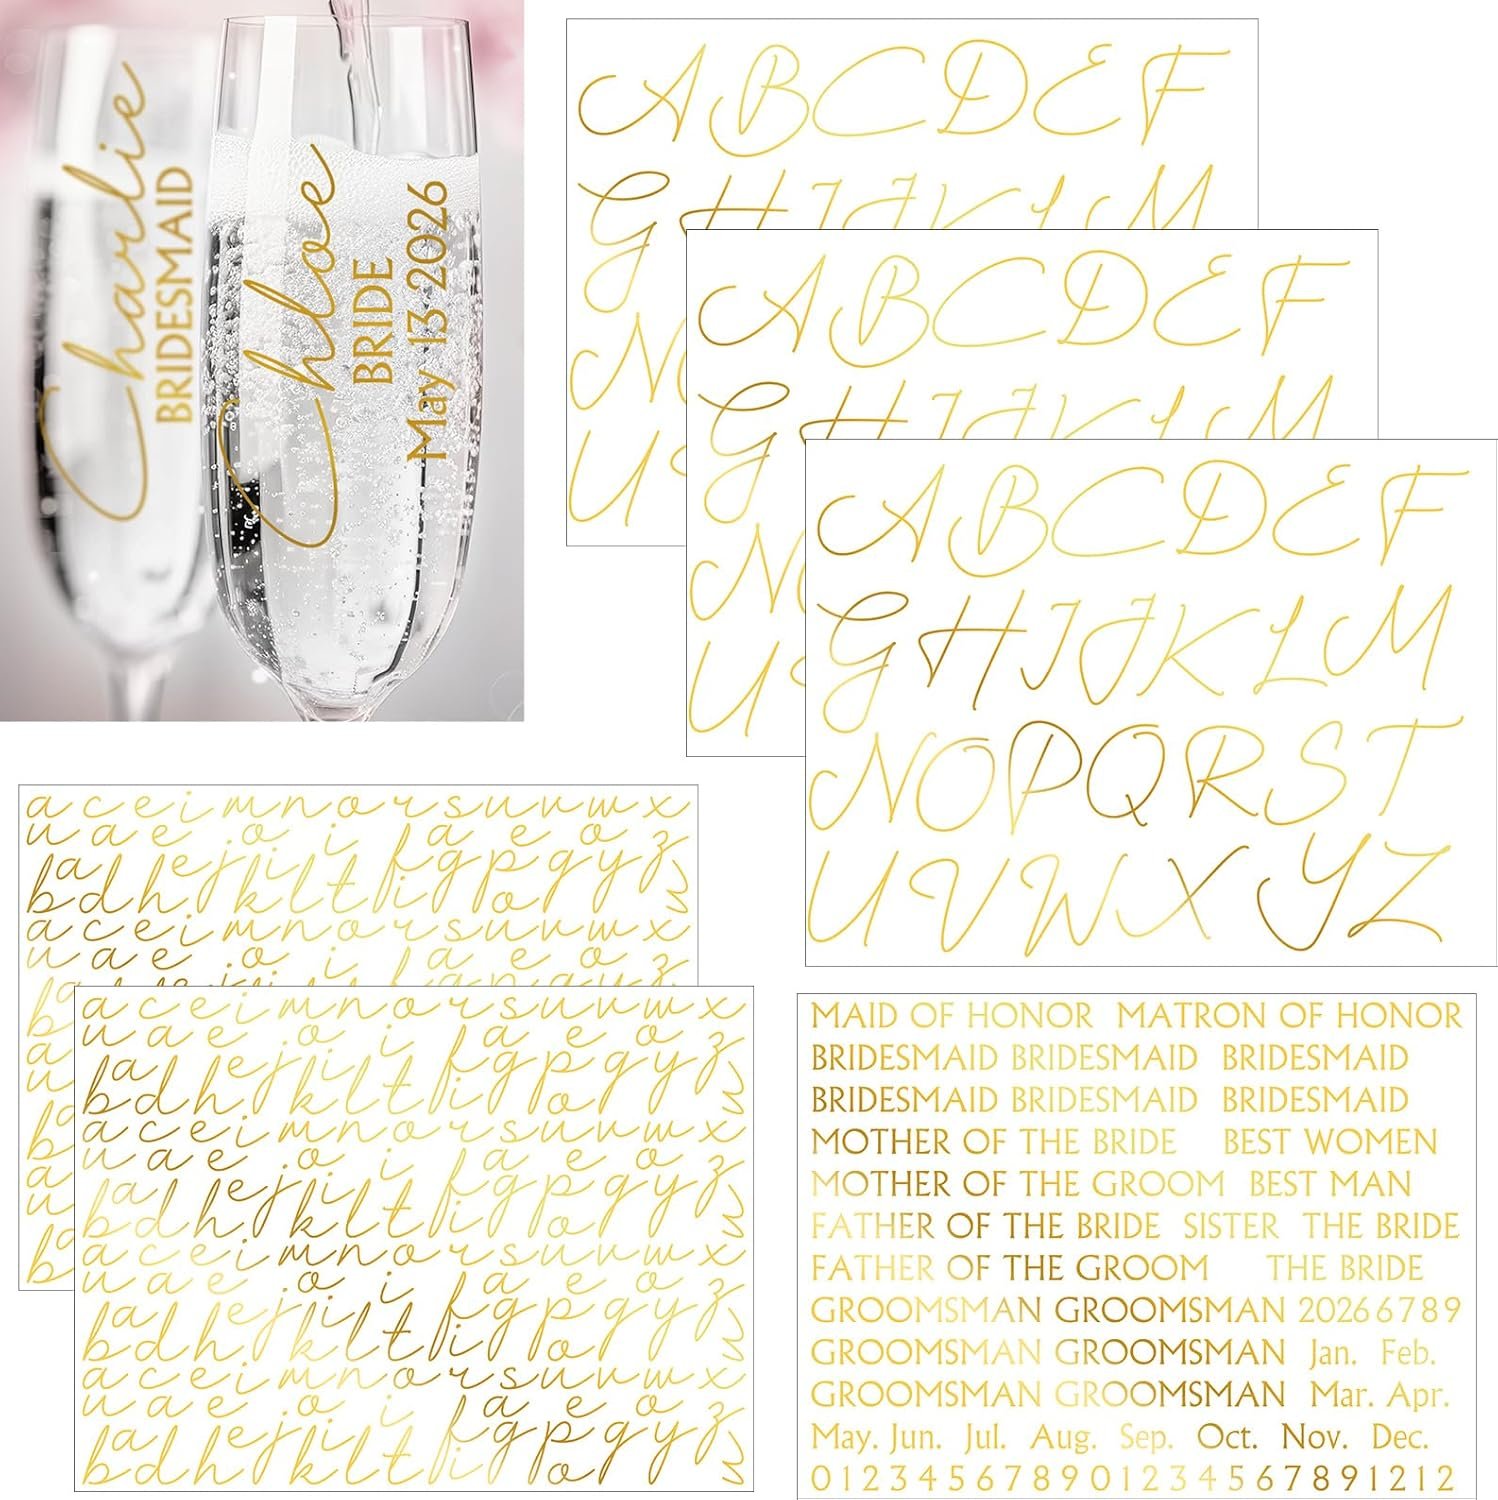 Charlie
BRIDESMAID
Chloe
BRIDE
May 13 2026
A B C D E F
G H I J K L M
N
U
A B C D E F
G H I J K L M
N
U
A B C D E F
G H I J K L M
N O P Q R S T
U V W X Y Z
a c e i m n o r s u v w x
u a e o i a e o
a e j i f g p q y z
b d h k l t i o
a c e i m n o r s u v w x
u a e o i a e o
a c e i m n o r s u v w x
u a e o i a e o
a e j i f g p q y z
b d h k l t i o
a c e i m n o r s u v w x
u a e o i a e o
a e j i f g p q y z
b d h k l t i o
a c e i m n o r s u v w x
u a e o i a e o
a e j i f g p q y z
b d h k l t i o
a c e i m n o r s u v w x
u a e o i a e o
a e j i f g p q y z
b d h k l t i o
MAID OF HONOR MATRON OF HONOR
BRIDESMAID BRIDESMAID BRIDESMAID
BRIDESMAID BRIDESMAID BRIDESMAID
MOTHER OF THE BRIDE BEST WOMEN
MOTHER OF THE GROOM BEST MAN
FATHER OF THE BRIDE SISTER THE BRIDE
FATHER OF THE GROOM THE BRIDE
GROOMSMAN GROOMSMAN 20266789
GROOMSMAN GROOMSMAN Jan. Feb.
GROOMSMAN GROOMSMAN Mar. Apr.
May. Jun. Jul. Aug. Sep. Oct. Nov. Dec.
0 1 2 3 4 5 6 7 8 9 0 1 2 3 4 5 6 7 8 9 1 2 1 2